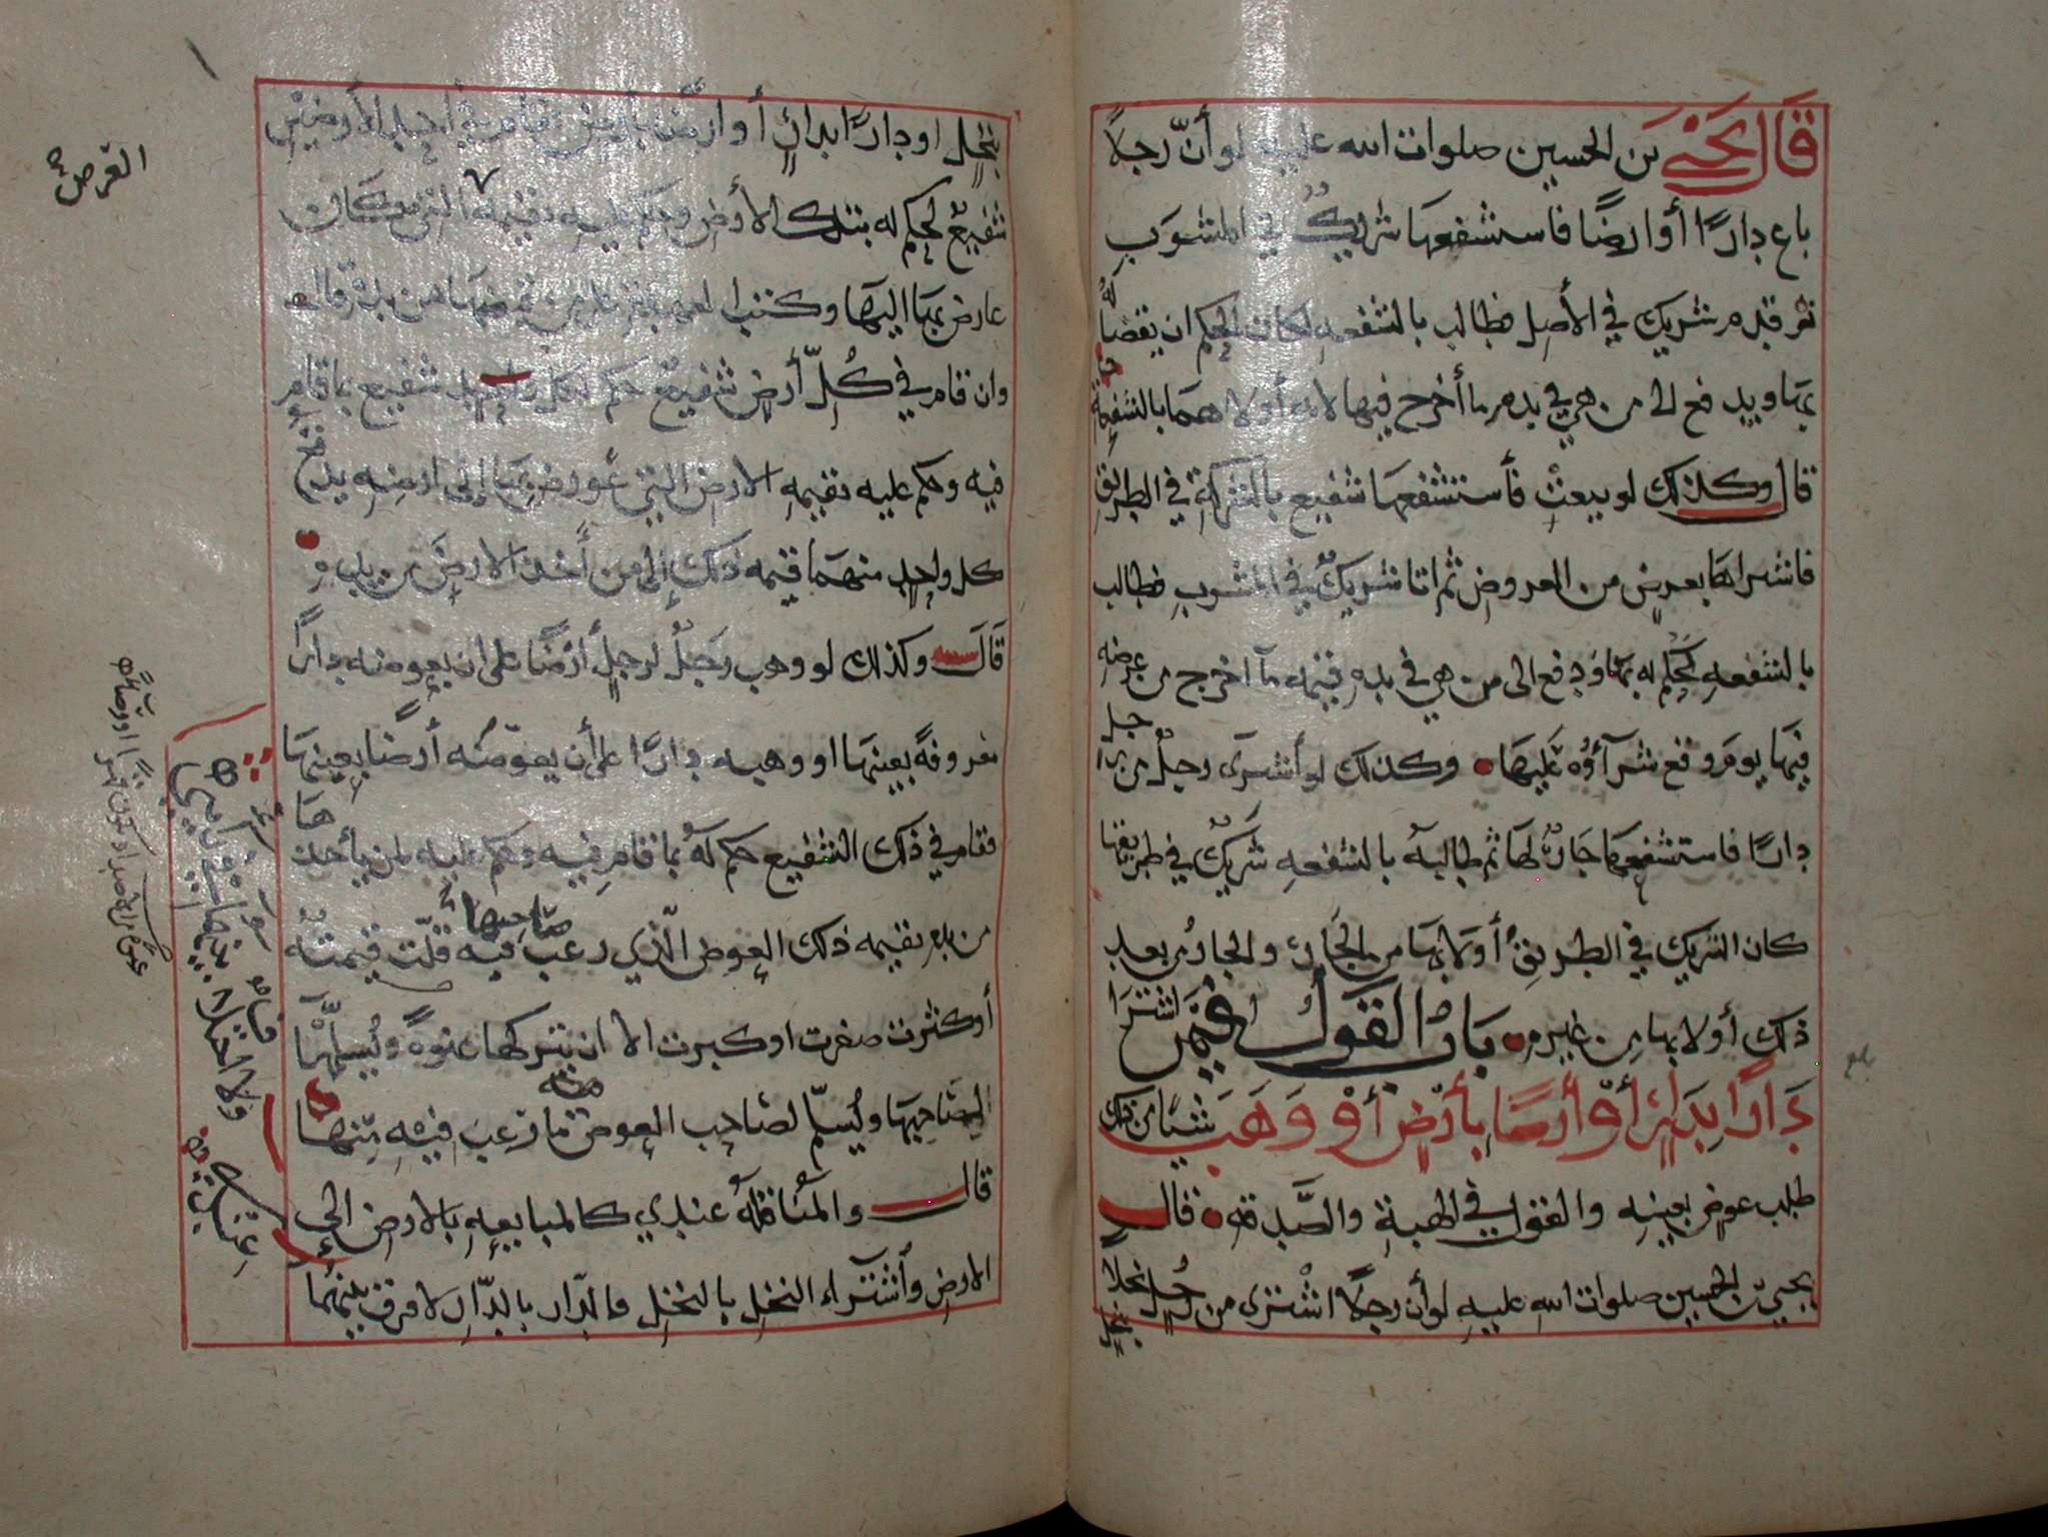 قَالَ يَحْيَى بن الحسين صلوات الله عليه لو أنّ رجلاً
باع دارًا أو ارضًا فاستشفعها شريكٌ في المشوَب
ثم قدم شريك في الأصل فطالب بالشفعه لكان الحكم ان يقضا له
بها ويدفع الى من هي في يده ما أخرج فيها لانه أولاهما بالشفعة
قال وكذلك لو بيعتْ فأستشفعها شفيع بالشركة في الطريق
فاشتراها بعرض من العروض ثم اتا شريكٌ في المشوبِ فطالب
بالشفعهِ لحُكم له بها ودفع الى من هي في يدهِ قيمة ما اخرج من عرضهِ
فيها يوم وقع شرآؤه عليها وكذلك لو أشترى رجلٌ من رجل
دارًا فاستشفعها جارٌ لها ثم طالبه بالشفعهِ شريكٌ في طريقها
كان الشريك في الطريق أولا بها من الجار والجار من بعد
ذلك أولا بها من غيره بابُ القول فيمن اشترا
دَارًا بِدَارٍ أوْ أرضًا بأرْضٍ أوْ وَهَب شيئا من ذلك
طلب عوض بعينه والقول في الهبةِ والصَّدقه قال
يحيى بن الحسين صلوات الله عليهِ لو أن رجلاً اشترى من رجل نخلاً
بنخل
بنخل او دارًا بدارٍ أو ارضًا بأرض فقام في أحد الأرضين
شفيعٌ لحكم له بتلك الأرض وحكم عليه بقيمة التي كان
عارض بها اليها
وان قام في كُلّ أرضٍ شفيعٌ حكم لكل شفيع بما قام
فيه وحكم عليه بقيمهِ الارض التي عُورض بها إلى ارضِه يدفع
كل واحدٍ منهما قيمه ذلك إلى من أخذ الارضَ من يده
قَالَ وكذلك لو وهب رجلٌ لرجلٍ أرْضًا على ان يعوضه دارًا
معروفةً بعينها او وهبه دارًا على أن يعوّضُه أرضا بعينها
فقام في ذلك الشفيع حكم لهُ بما قام فيه وحكم عليه لمن يأخذها
من يده بقيمه ذلك العوض الّذي رغب فيه صاحبها قلّت قيمته
أو كثرت صغرت او كبرت الا ان يتركها عنوةً ويُسلّمها
لصاحبها ويُسلّم لصاحب العوض ما رغب فيهِ منها
قال والمُناقلهُ عندي كالمبايعهِ بالارض الى
الارض وأشتراء النخل بالنخل والدّار بالدّار لا فرق بينهما
العرض